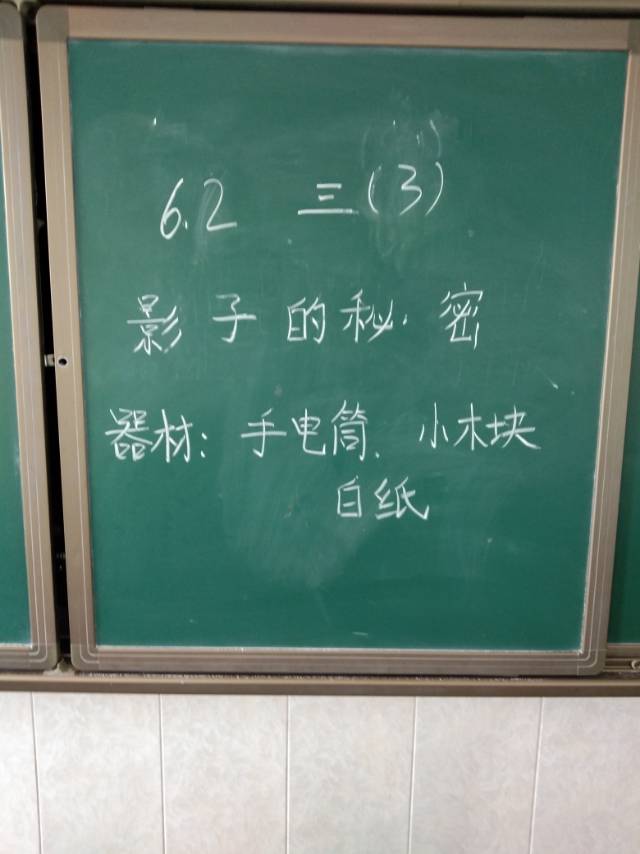 6.2 三(3)
影子的秘密
器材：手电筒、小木块
白纸